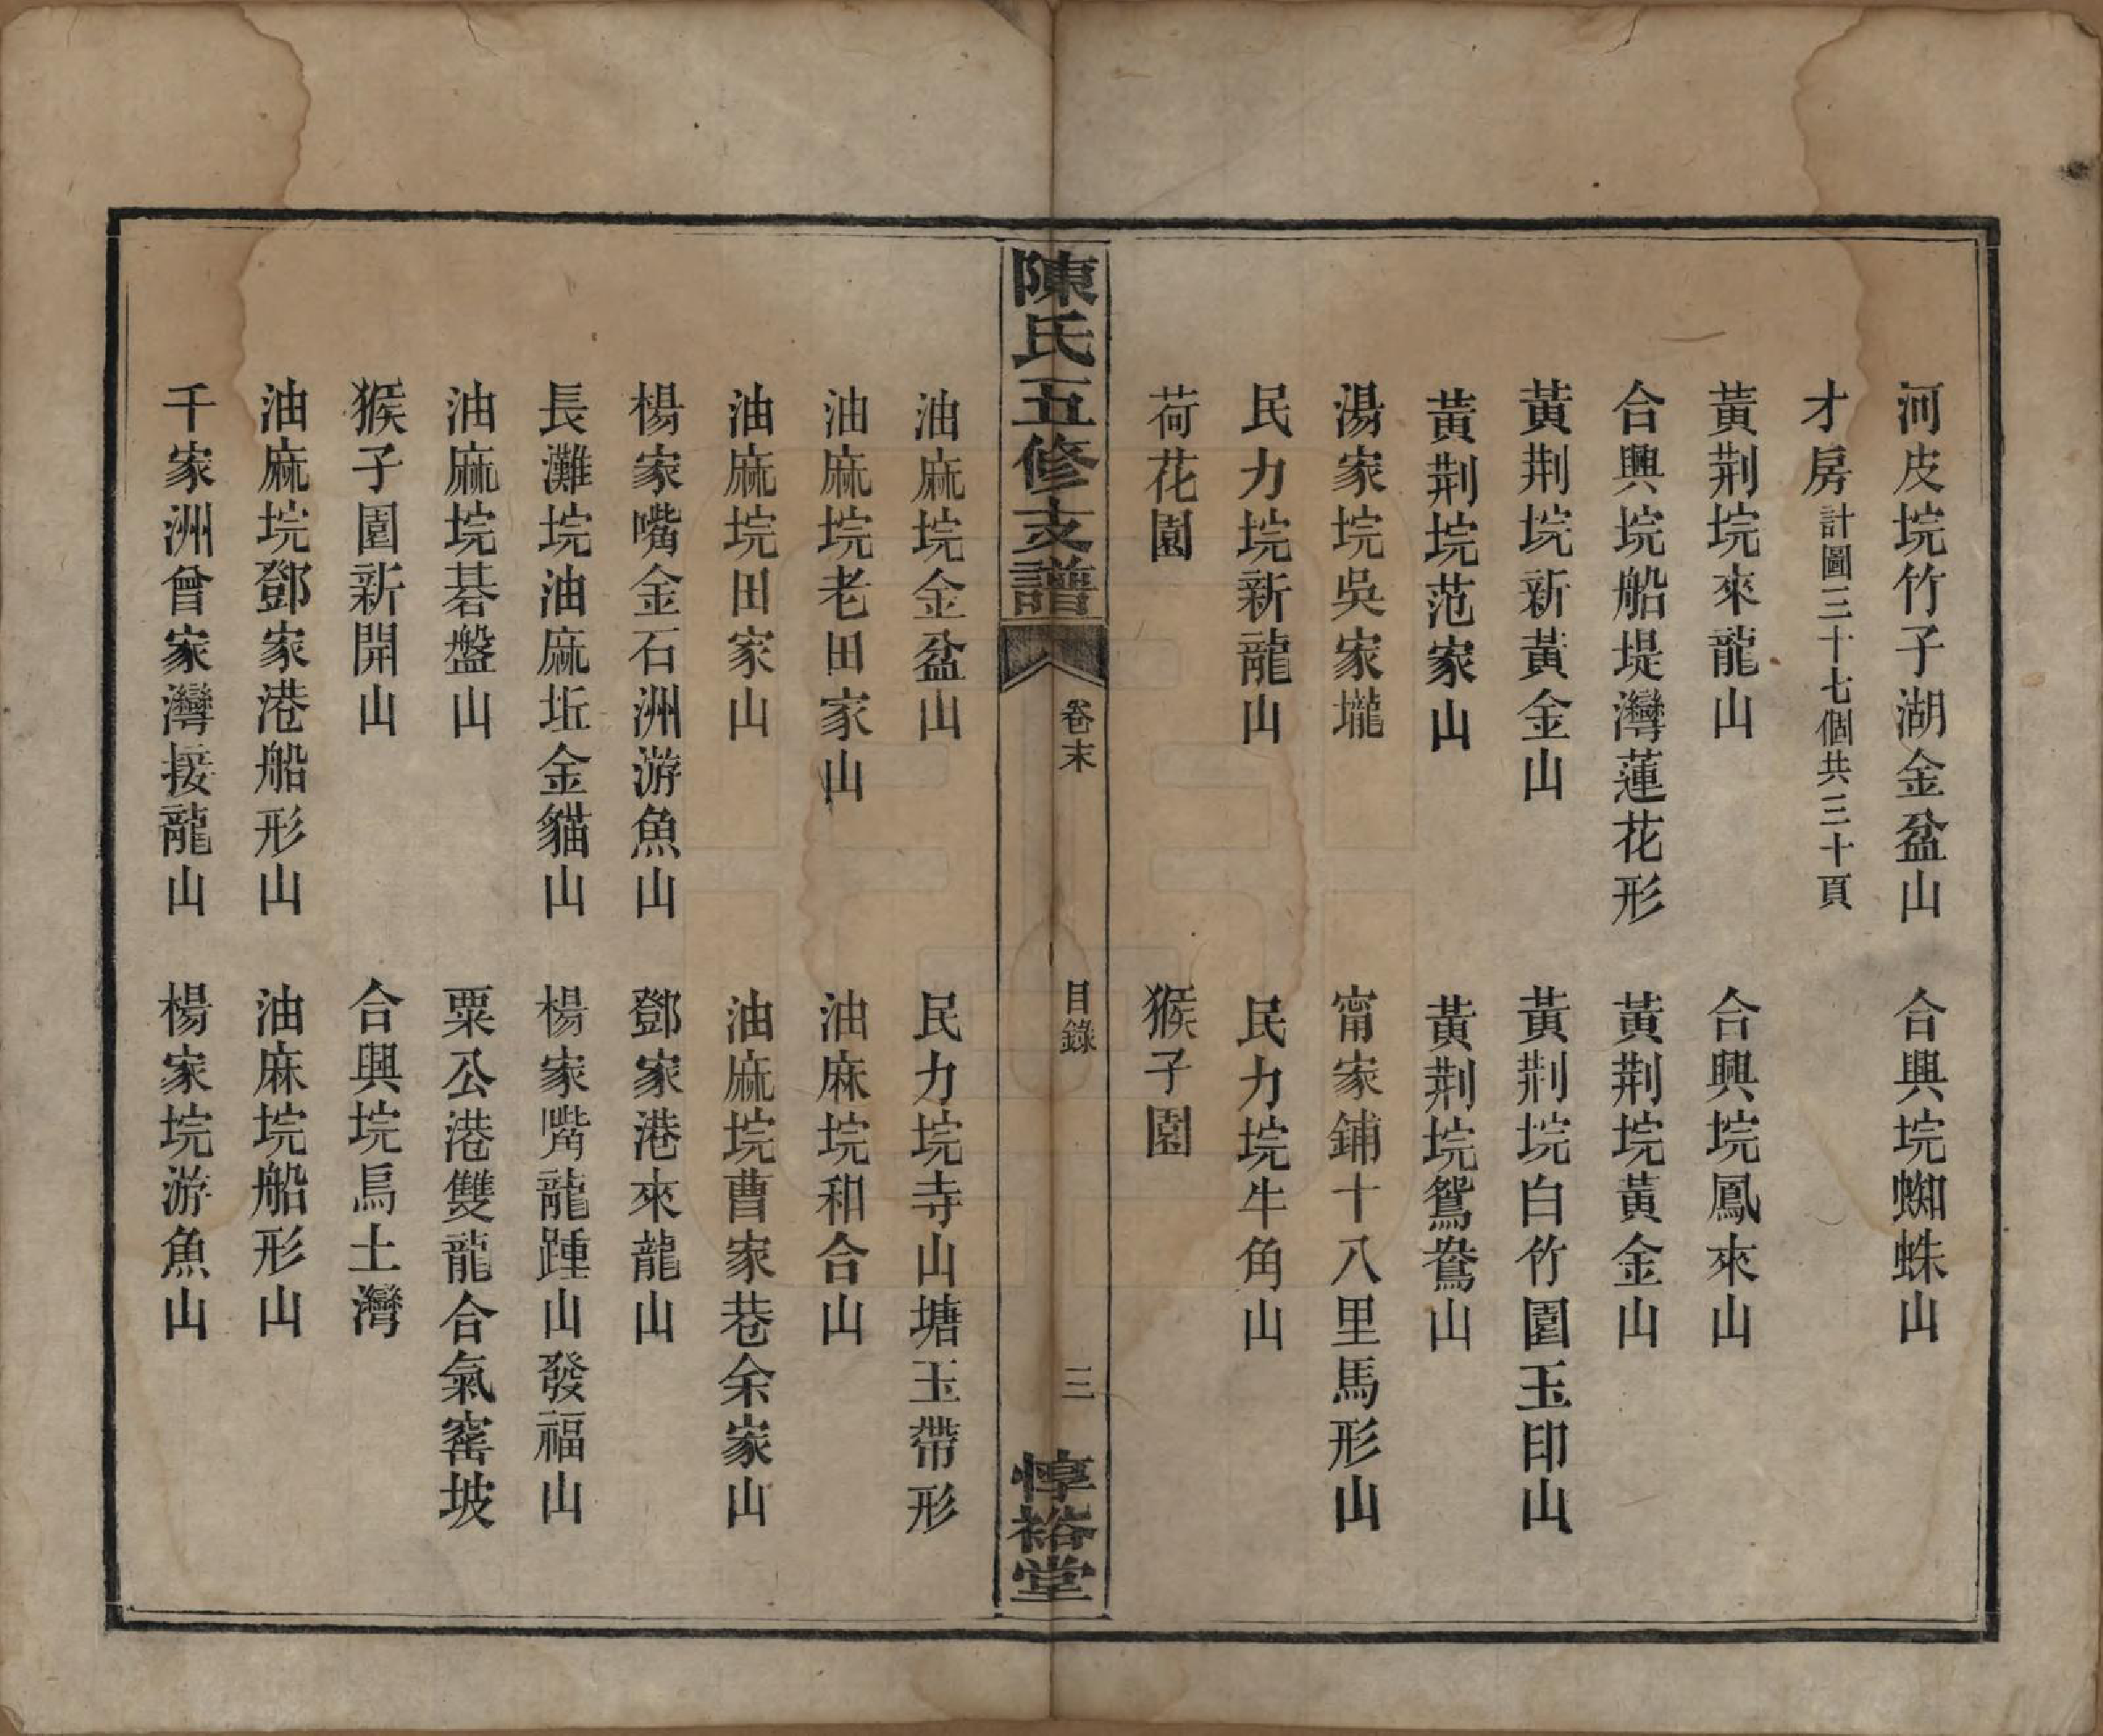 河皮垸竹子湖金盆山　合興垸蜘蛛山
才房計圖三十七個共三十頁
黃荆垸來龍山　合興垸鳳來山
合興垸船堤灣蓮花形　黃荆垸黃金山
黃荆垸新黃金山　黃荆垸白竹園玉印山
黃荆垸范家山　黃荆垸鴛鴦山
湯家垸吳家壠　甯家鋪十八里馬形山
民力垸新龍山　民力垸牛角山
荷花園　猴子園
陳氏五修支譜　卷末　目錄　三　惇裕堂
油麻垸金盆山　民力垸寺山塘玉帶形
油麻垸老田家山　油麻垸和合山
油麻垸田家山　油麻垸曹家巷余家山
楊家嘴金石洲游魚山　鄧家港來龍山
長灘垸油麻坵金貓山　楊家嘴龍踵山發福山
油麻垸碁盤山　粟公港雙龍合氣窰坡
猴子園新開山　合興垸烏土灣
油麻垸鄧家港船形山　油麻垸船形山
千家洲曾家灣接龍山　楊家垸游魚山